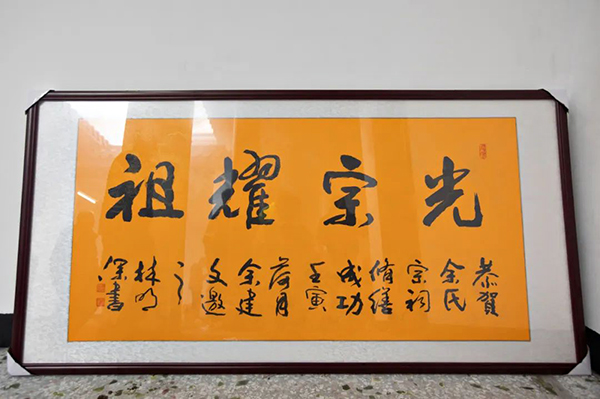 光宗耀祖
恭賀
余氏
宗祠
脩繕
成功
壬寅
荷月
余建
文邀
之
林明
深書